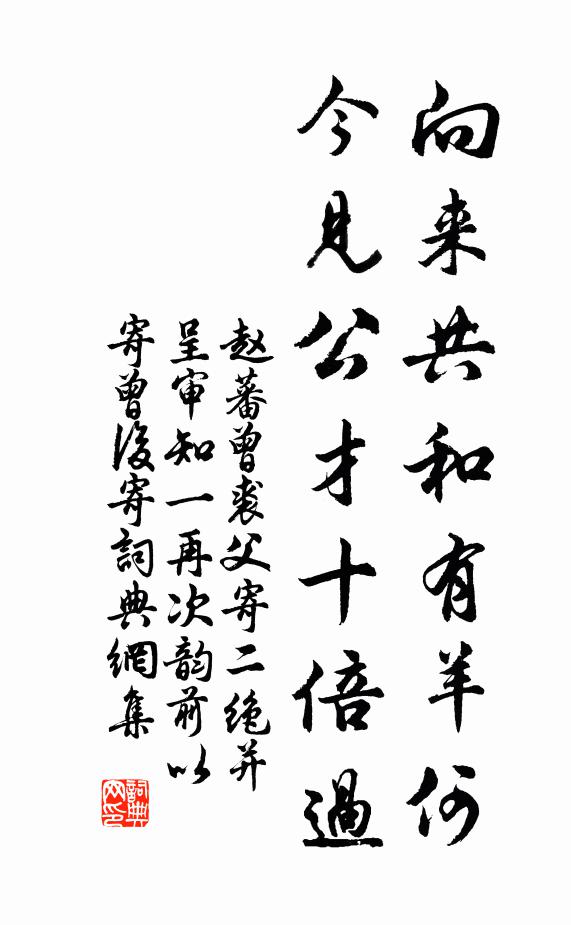 向来共和有羊何
今見公才十倍過
赵蕃曾裘父寄二绝并
呈审知一再次韵前以
寄曾後寄詞典網集
詞典网印